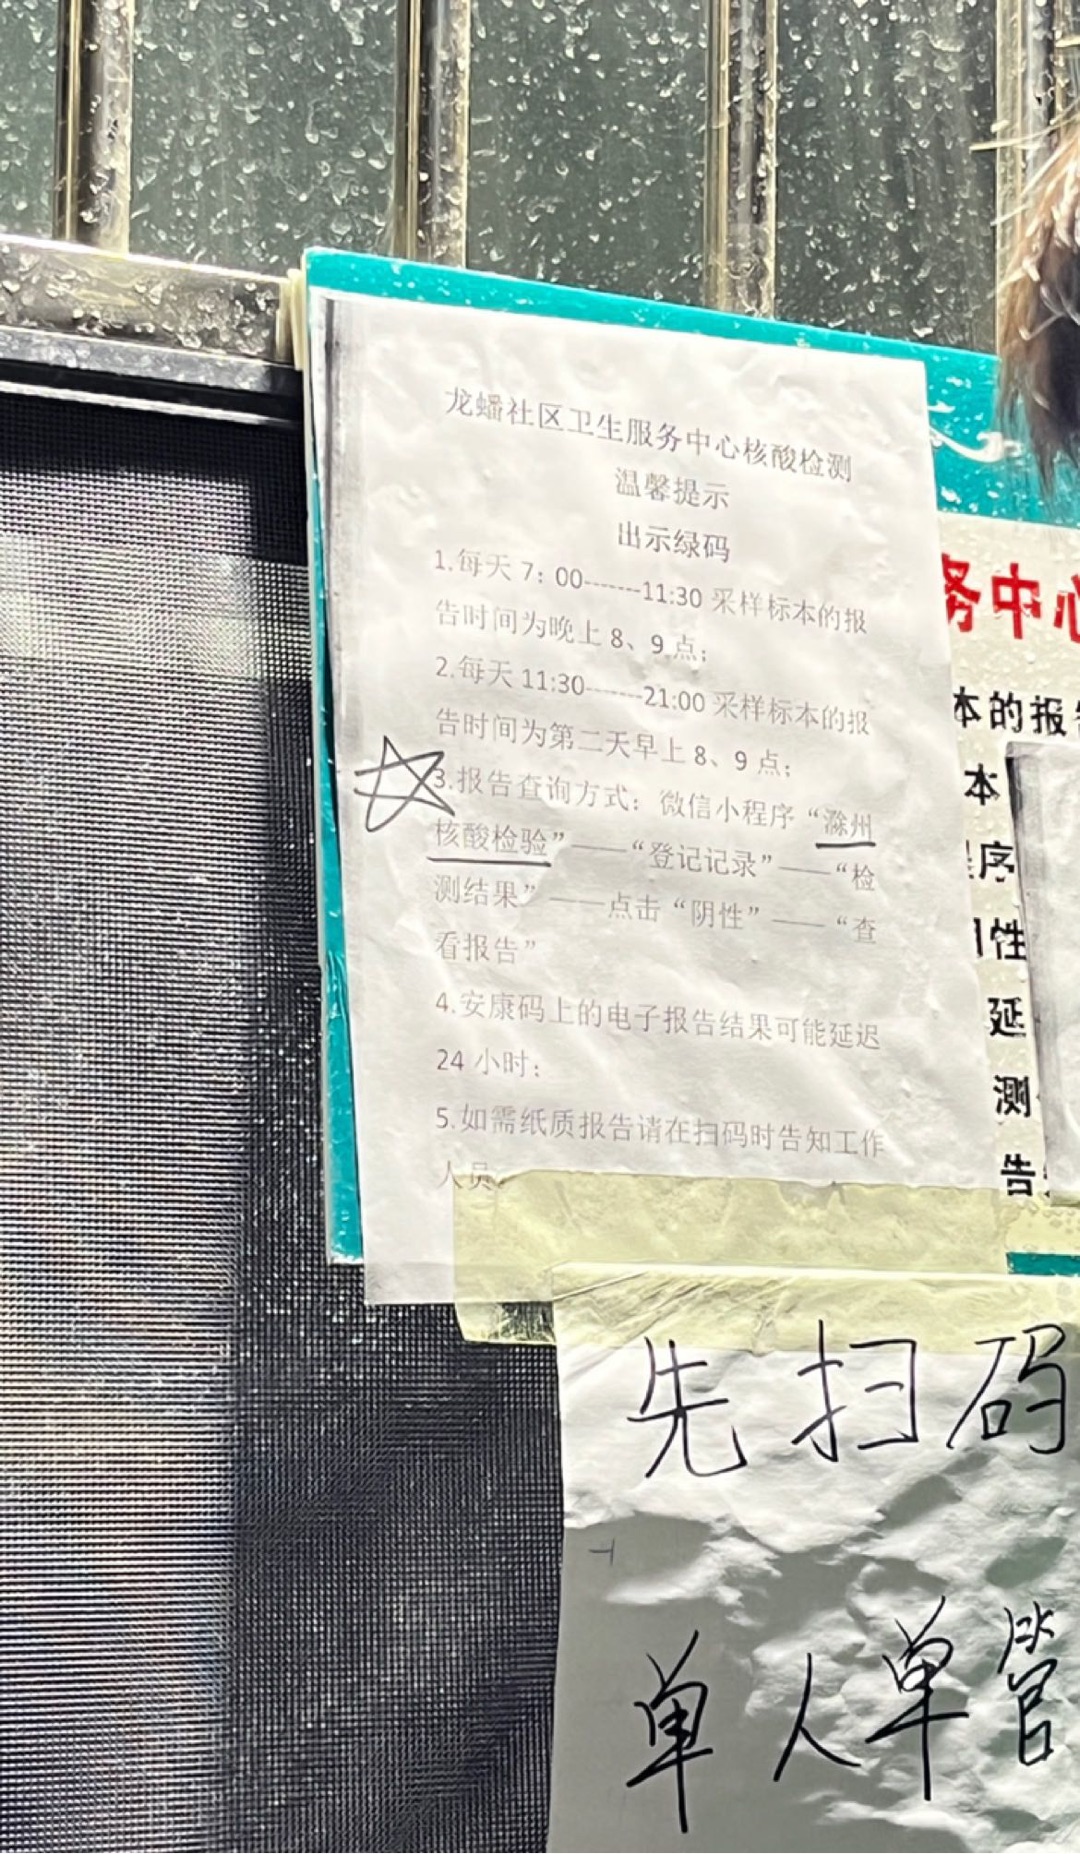 龙蟠社区卫生服务中心核酸检测
温馨提示
出示绿码
1.每天 7：00-------11:30 采样标本的报
告时间为晚上 8、9 点；
2.每天 11:30-------21:00 采样标本的报
告时间为第二天早上 8、9 点；
3.报告查询方式：微信小程序“滁州
核酸检验”——“登记记录”——“检
测结果”——点击“阴性”——“查
看报告”
4.安康码上的电子报告结果可能延迟
24 小时；
5.如需纸质报告请在扫码时告知工作
人员。
务中心
本的报告
本
序
性
延
测
告
先扫码
单人单管